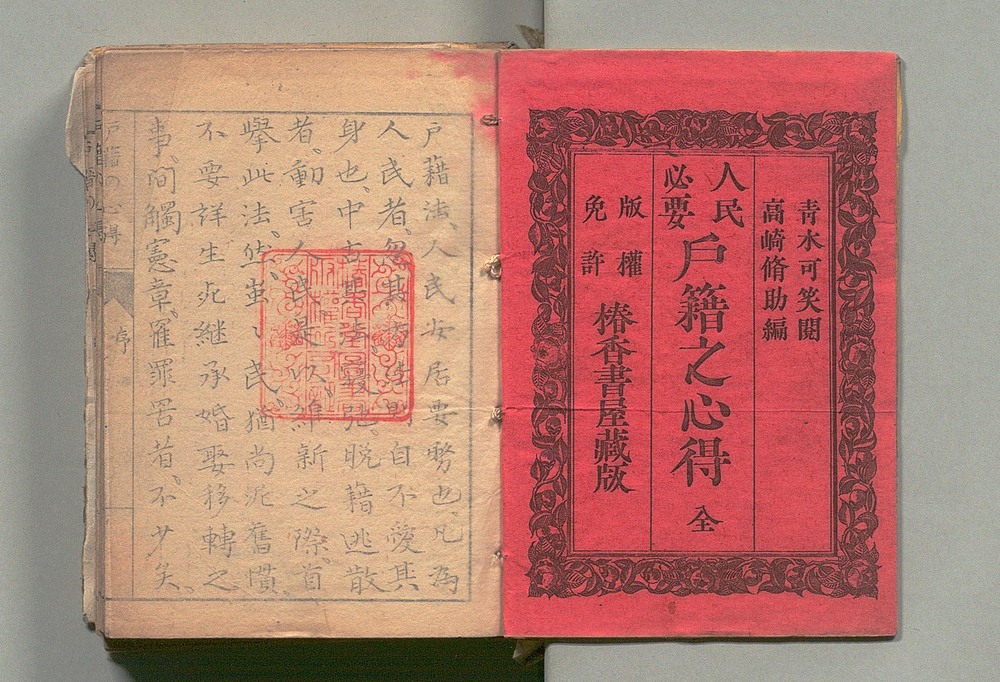 青木可笑閲
高崎脩助編
人民
必要
戶籍之心得 全
版權
免許
椿香書屋藏版
戶籍法、人民安居要務也、凡為
人民者、忽其
自不愛其
身也、中古
弛、脫籍逃散
者、動害人民、是以維新之際、首
擧此法、然蚩〻民、猶尚泥舊慣、
不要詳生死継承婚娶移轉之
事、間觸憲章、罹罪罟者、不少矣、
序